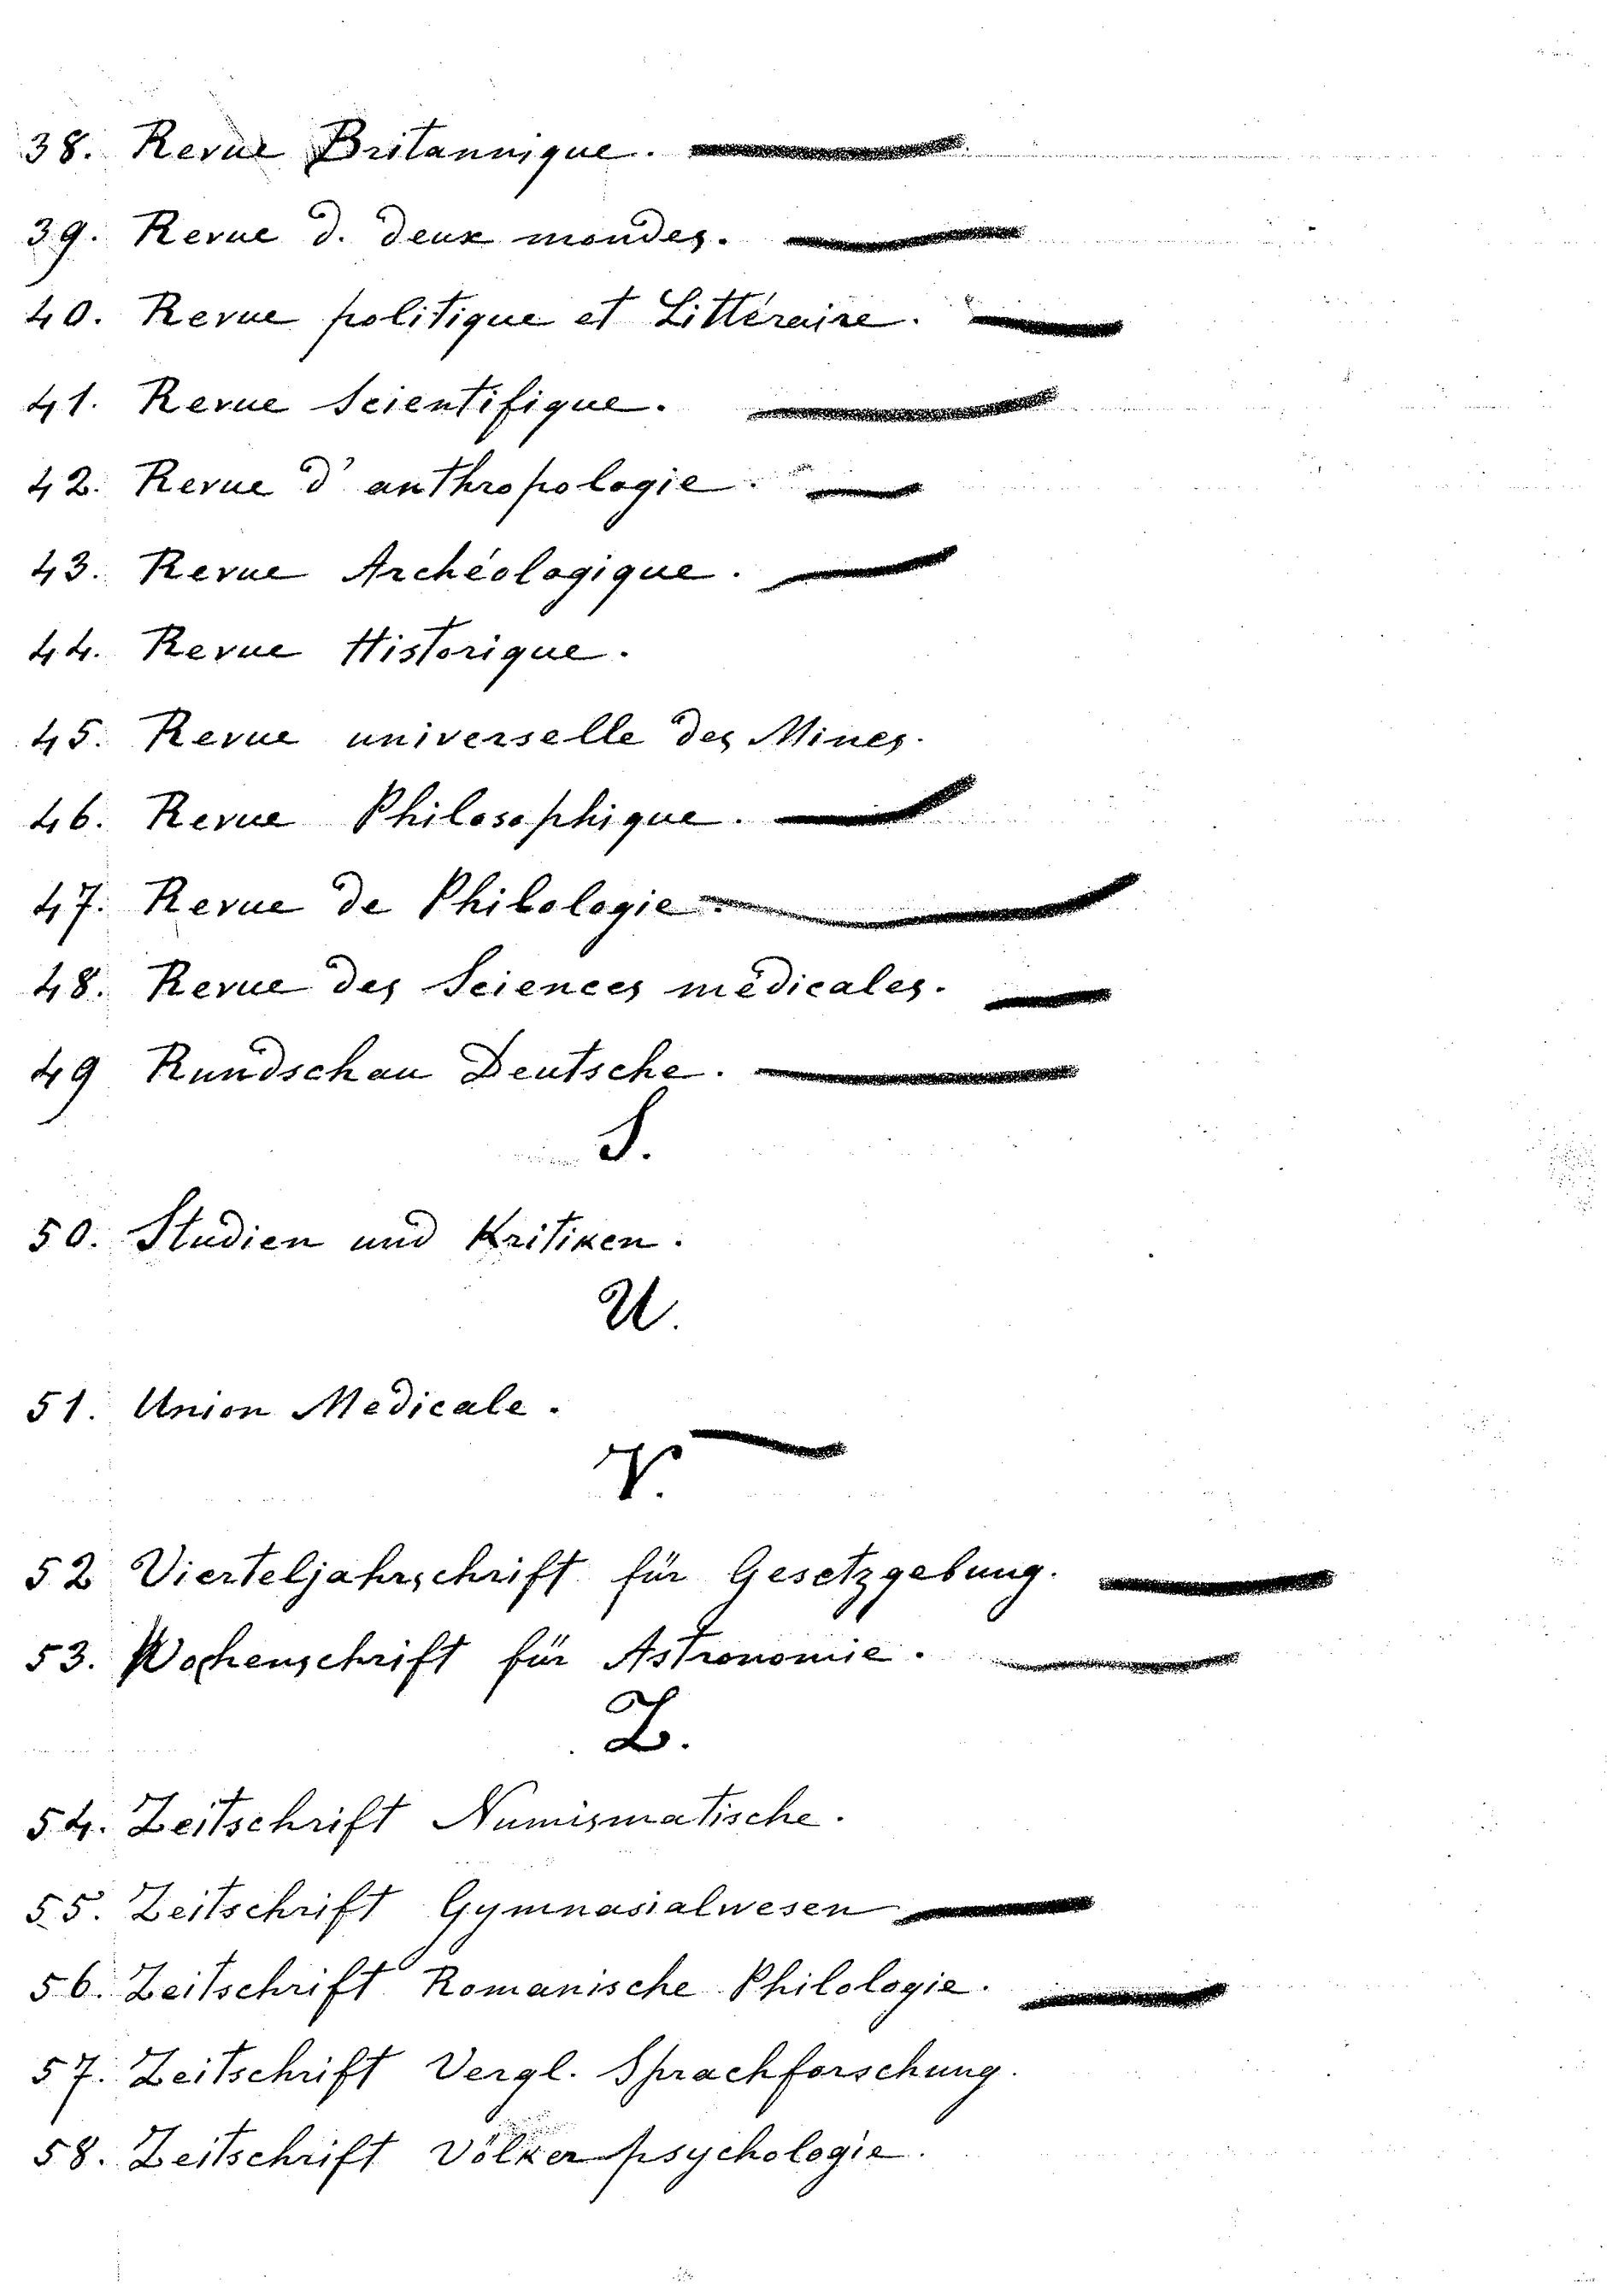 38. Revue Britannique.
39. Revue d. deux mondes.
40. Revue politique et Littéraire.
41. Revue Scientifique.
42. Revue d' anthropologie.
43. Revue Archéologique.
44. Revue Historique.
45. Revue universelle des Mines.
46. Revue Philosophique.
47. Revue de Philologie.
48. Revue des Sciences médicales.
49 Rundschau Deutsche.
S.
50. Studien und Kritiken.
U.
51. Union Medicale.
V.
52 Vierteljahrschrift für Gesetzgebung.
53. Wochenschrift für Astronomie.
Z.
54. Zeitschrift Numismatische.
55. Zeitschrift Gymnasialwesen
56. Zeitschrift Romanische Philologie.
57. Zeitschrift Vergl. Sprachforschung.
58. Zeitschrift Völkerpsychologie.